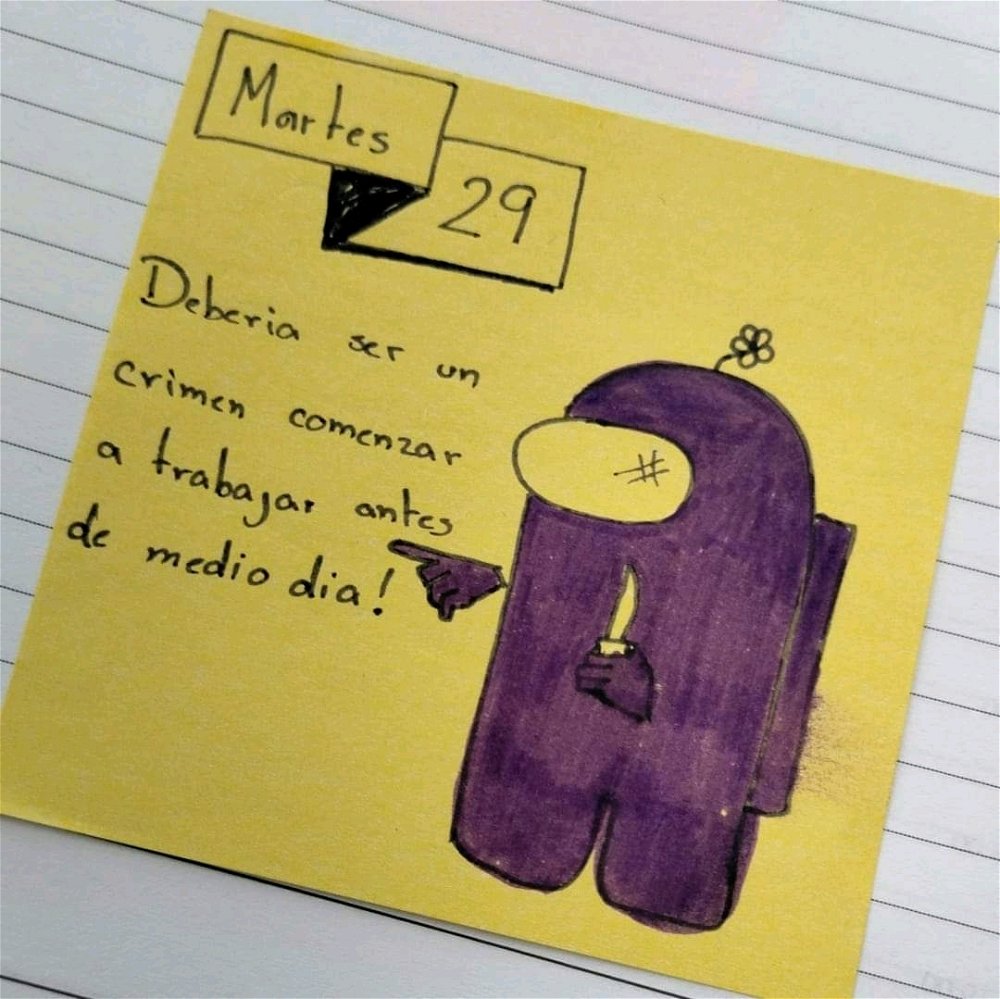 Martes
29
Deberia ser un
crimen comenzar
a trabajar antes
de medio dia!
#